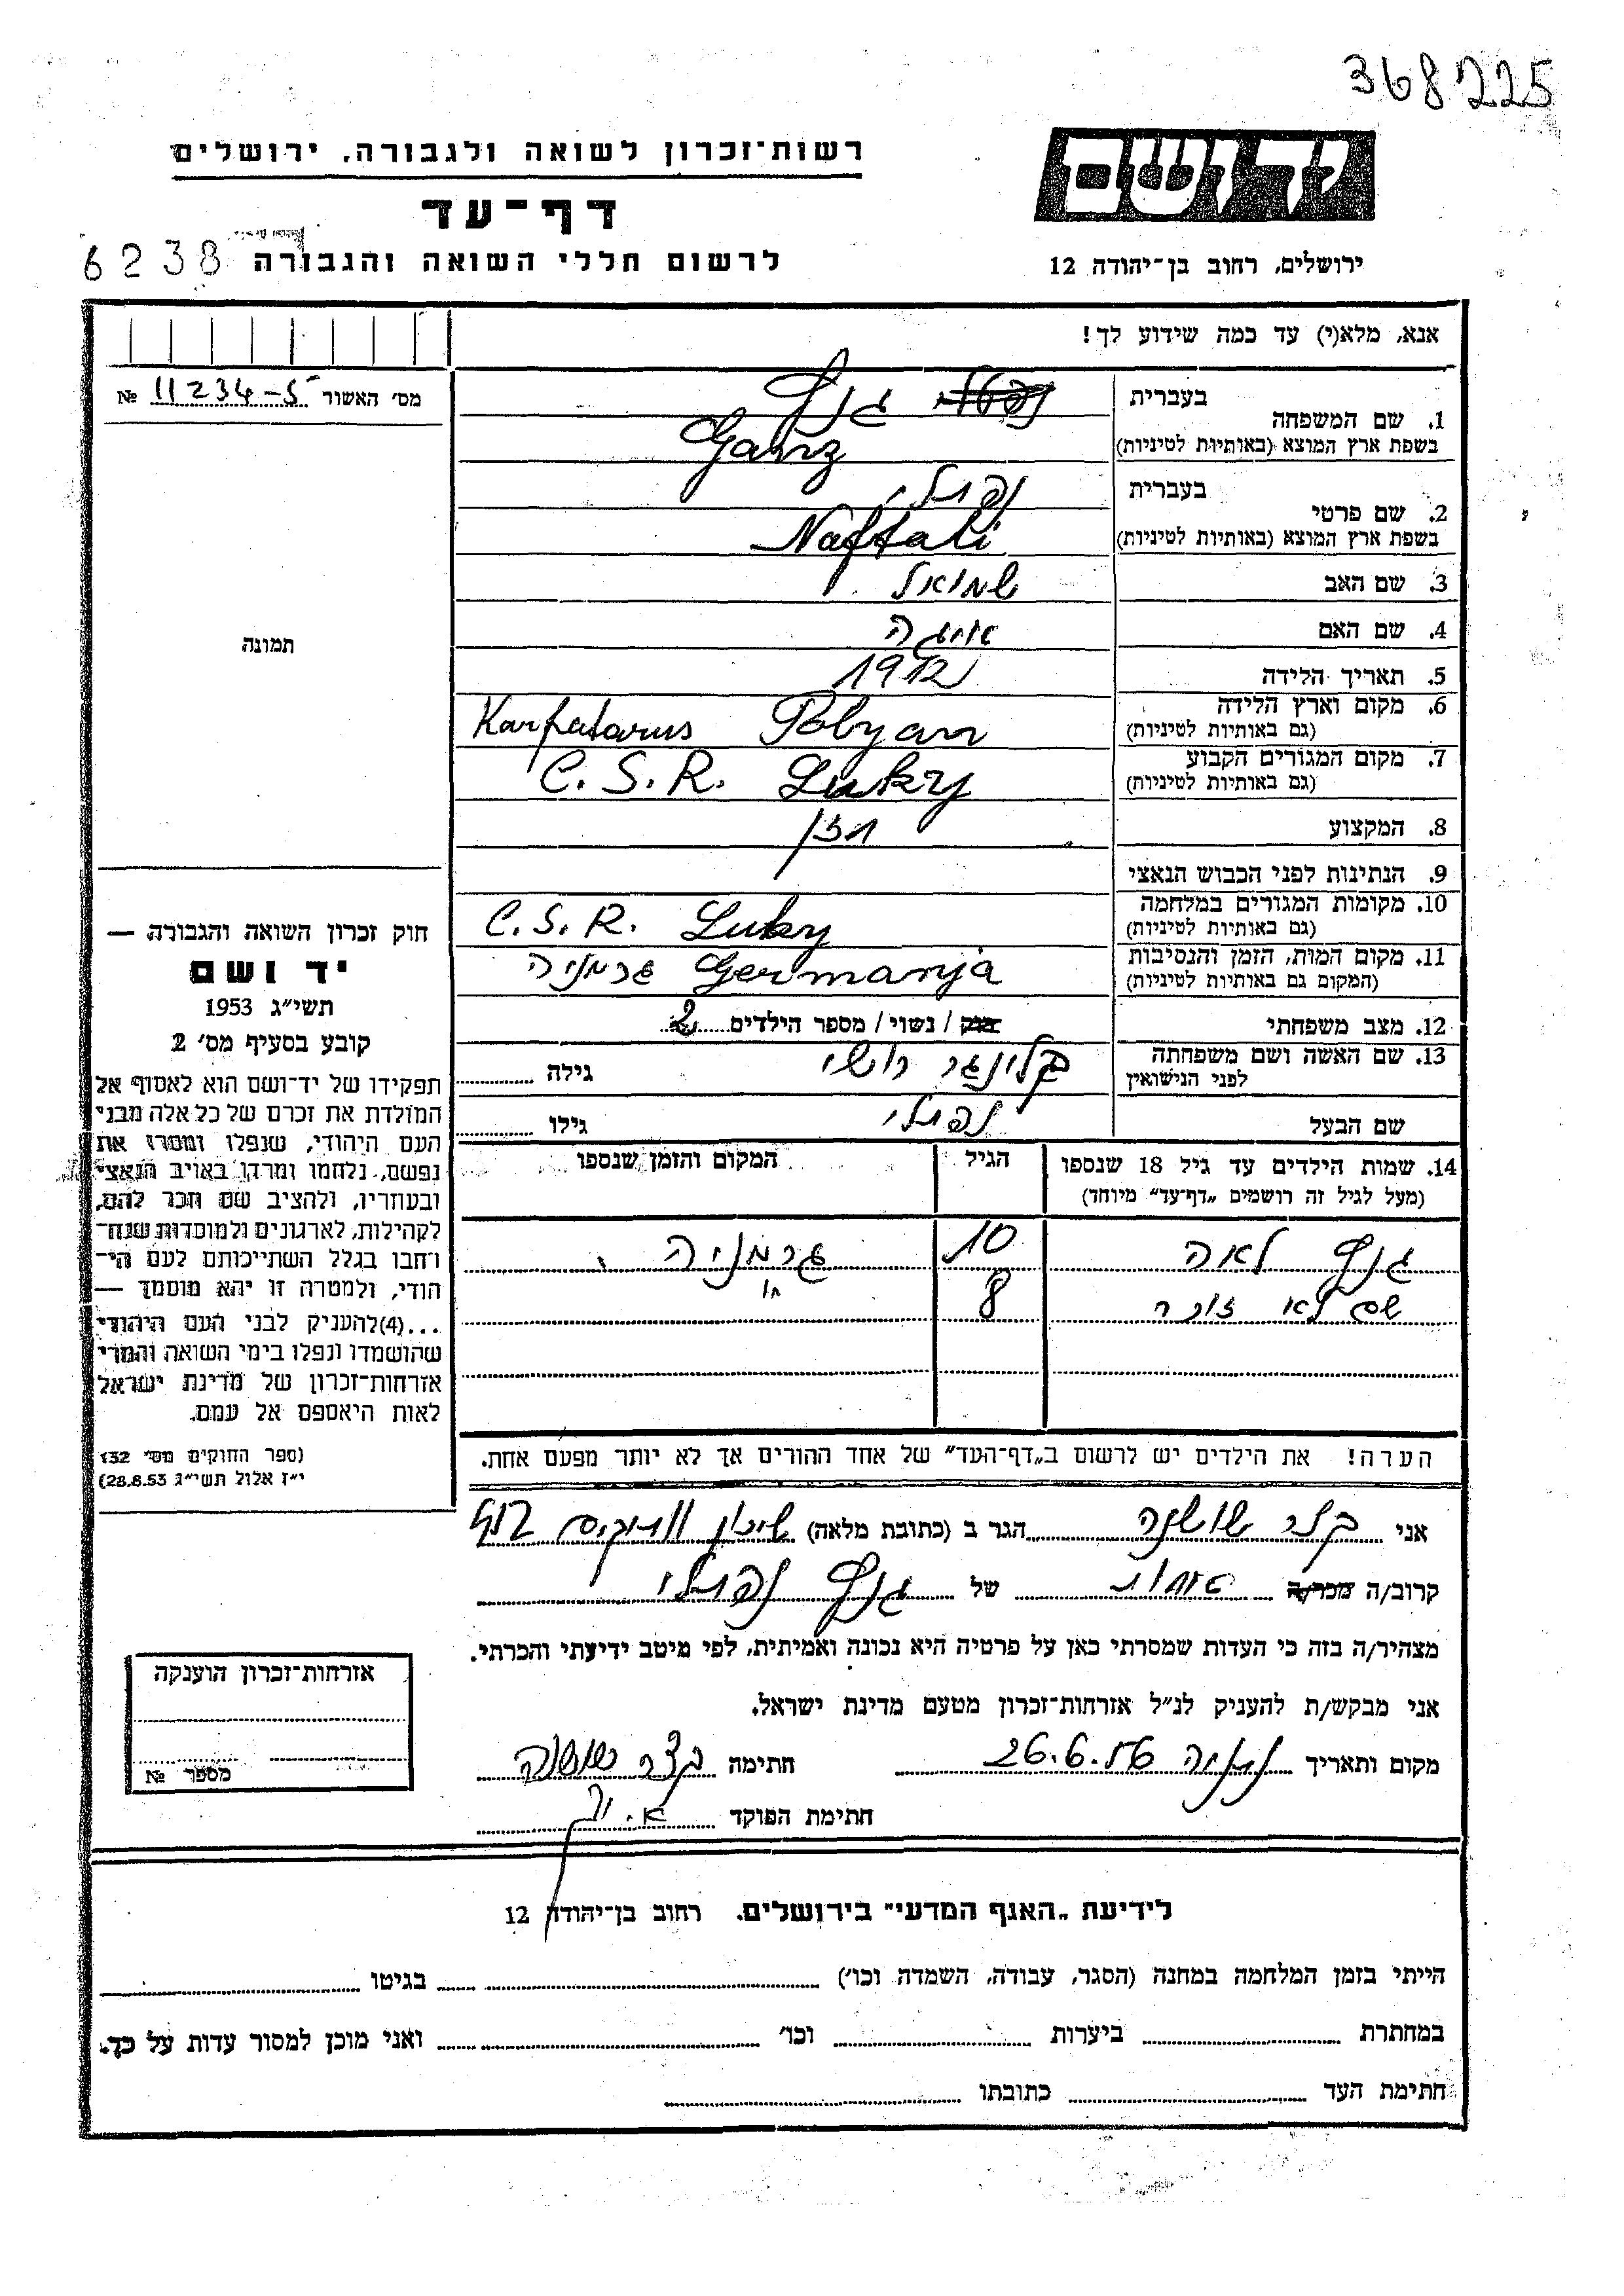 368225
יד ושם
רשות־זכרון לשואה ולגבורה, ירושלים
דף־עד
לרשום חללי השואה והגבורה
6238
ירושלים, רחוב בן־יהודה 12
אנא, מלא(י) עד כמה שידוע לך!
מס׳ האשור 11234-5 №
1. שם המשפחה
בעברית גנץ
בשפת ארץ המוצא (באותיות לטיניות) Ganz
2. שם פרטי
בעברית נפתלי
בשפת ארץ המוצא (באותיות לטיניות) Naftali
3. שם האב שמואל
4. שם האם
5. תאריך הלידה 1912
6. מקום וארץ הלידה Polyan Karpatarus
(גם באותיות לטיניות)
7. מקום המגורים הקבוע Luky C.S.R.
(גם באותיות לטיניות)
8. המקצוע חזן
9. הנתינות לפני הכבוש הנאצי
10. מקומות המגורים במלחמה Luky C.S.R.
(גם באותיות לטיניות)
11. מקום המות, הזמן והנסיבות Germanja גרמניה
(המקום גם באותיות לטיניות)
12. מצב משפחתי רווק / נשוי / מספר הילדים 2
13. שם האשה ושם משפחתה לפני הנישואין רושי גילה
שם הבעל נפתלי גילו
14. שמות הילדים עד גיל 18 שנספו הגיל המקום והזמן שנספו
(מעל לגיל זה רושמים „דף־עד״ מיוחד)
גנץ לאה 10 גרמניה
שם לא זוכר 8 "
הערה! את הילדים יש לרשום ב„דף־העד״ של אחד ההורים אך לא יותר מפעם אחת.
תמונה
חוק זכרון השואה והגבורה —
יד ושם
תשי״ג 1953
קובע בסעיף מס׳ 2
תפקידו של יד־ושם הוא לאסוף אל
המולדת את זכרם של כל אלה מבני
העם היהודי, שנפלו ומסרו את
נפשם, נלחמו ומרדו באויב הנאצי
ובעוזריו, ולהציב שם וזכר להם,
לקהילות, לארגונים ולמוסדות שנח־
רחבו בגלל השתייכותם לעם הי־
הודי, ולמטרה זו יהא מוסמך —
...(4) להעניק לבני העם היהודי
שהושמדו ונפלו בימי השואה והמרי
אזרחות־זכרון של מדינת ישראל
לאות היאספם אל עמם.
(ספר החוקים מס׳ 132
י״ז אלול תשי״ג 28.8.53)
אני שושנה הגר ב (כתובת מלאה) שיכון וותיקים
קרוב/ה מכר/ה של גנץ נפתלי
מצהיר/ה בזה כי העדות שמסרתי כאן על פרטיה היא נכונה ואמיתית, לפי מיטב ידיעתי והכרתי.
אני מבקש/ת להעניק לנ״ל אזרחות־זכרון מטעם מדינת ישראל.
מקום ותאריך נתניה 26.6.56 חתימה שושנה
חתימת הפוקד
אזרחות־זכרון הוענקה
מספר №
לידיעת „האגף המדעי״ בירושלים. רחוב בן־יהודה 12
הייתי בזמן המלחמה במחנה (הסגר, עבודה, השמדה וכו׳) בגיטו
במחתרת ביערות וכו׳ ואני מוכן למסור עדות על כך.
חתימת העד כתובתו